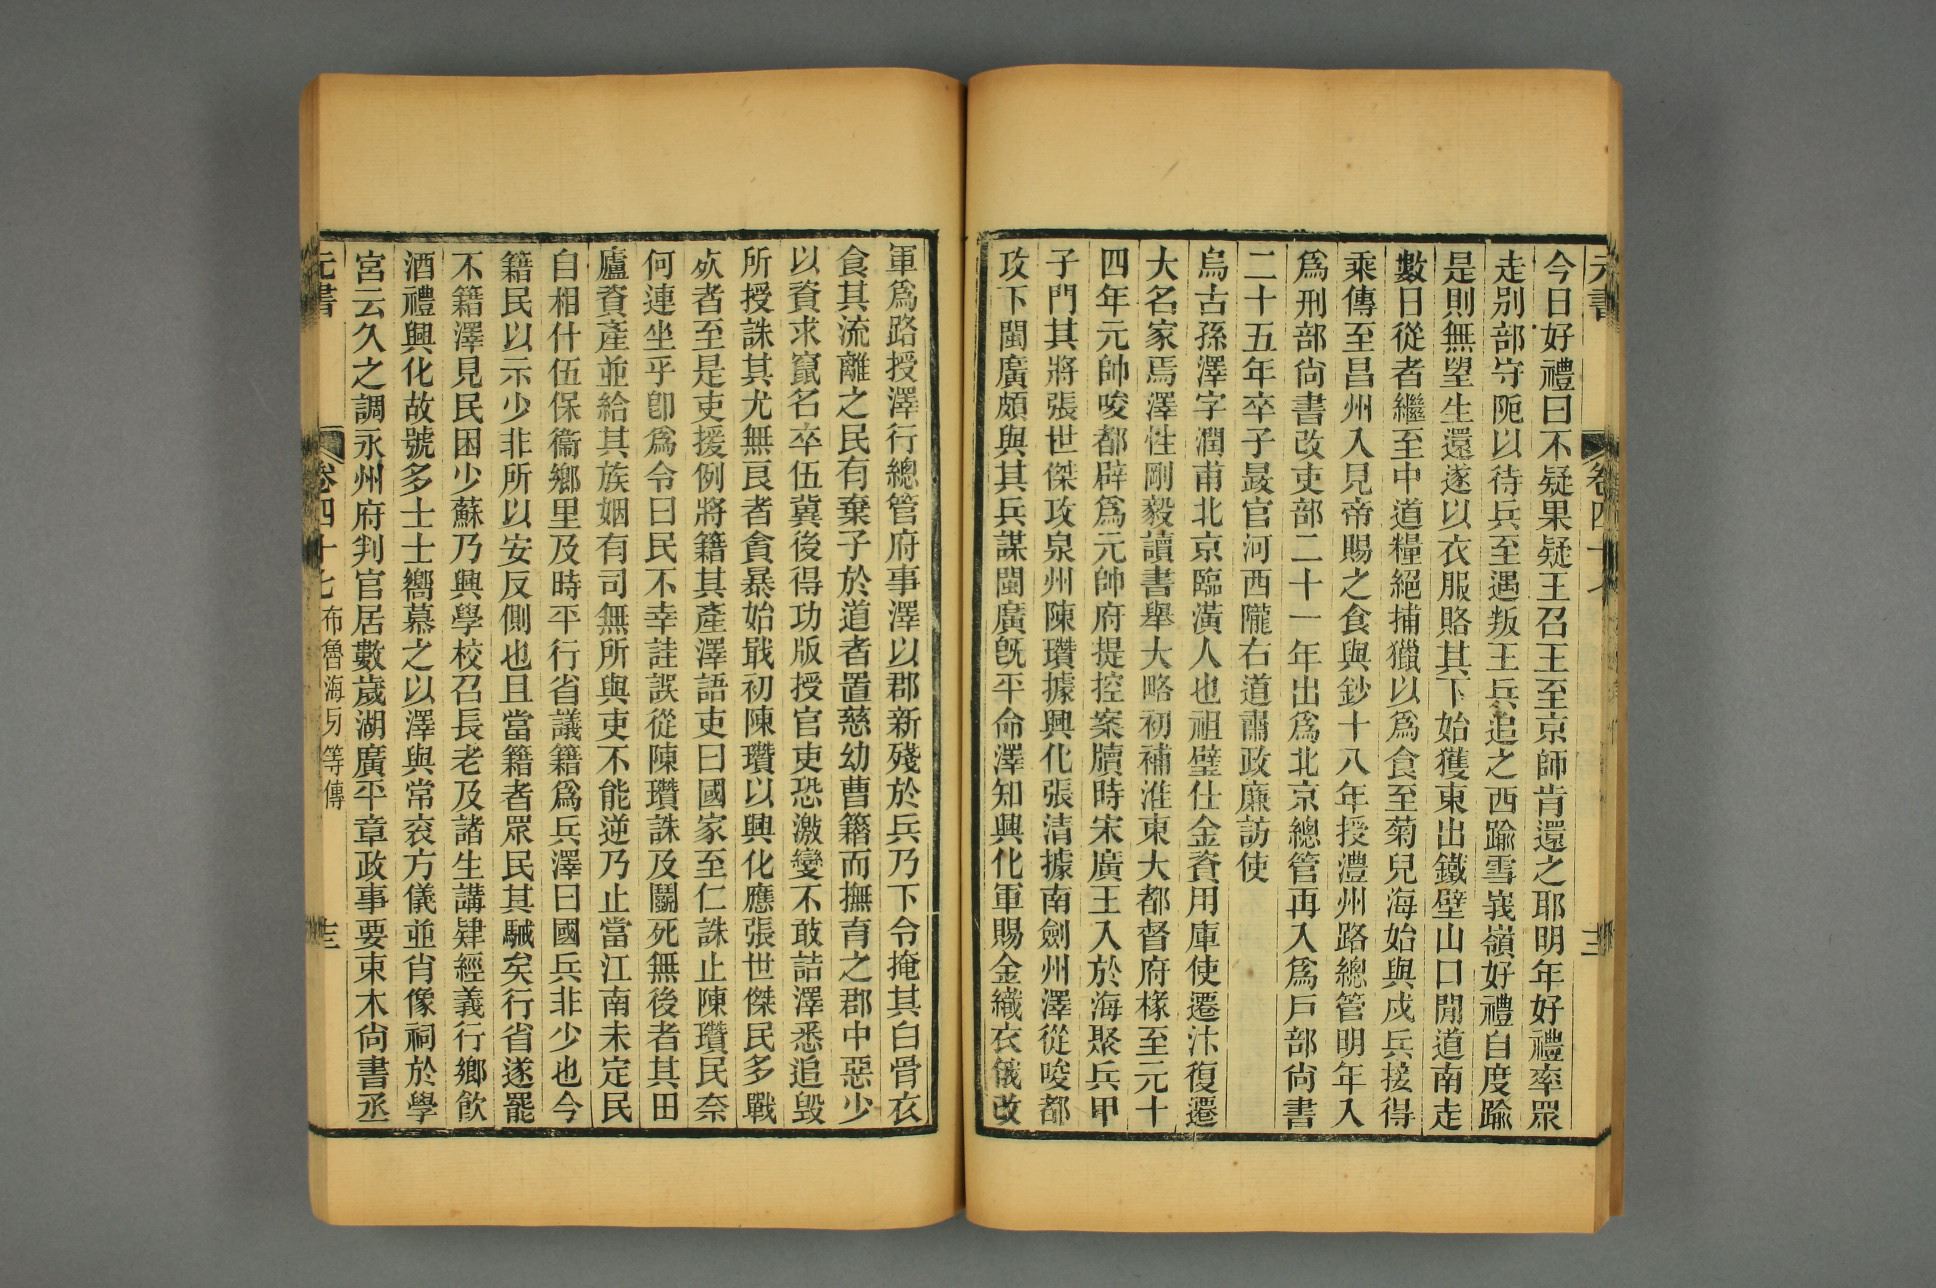 元書
卷四十七
今日好禮曰不疑果疑王召王至京師肯還之耶明年好禮率眾
走別部守阨以待兵至遇叛王兵追之西踰雪嶺好禮自度踰
是則無望生還遂以衣服賂其下始獲東出鐵壁山口閒道南走
數日從者繼至中道糧絕捕獵以爲食至菊兒海始與戍兵接得
乘傳至昌州入見帝賜之食與鈔十八年授澧州路總管明年入
爲刑部尙書改吏部二十一年出爲北京總管再入爲戶部尙書
二十五年卒子晸官河西隴右道肅政廉訪使
烏古孫澤字潤甫北京臨潢人也祖璧仕金資用庫使遷汴復遷
大名家焉澤性剛毅讀書舉大略初補淮東大都督府掾至元十
四年元帥唆都辟爲元帥府提控案牘時宋廣王入於海聚兵甲
子門其將張世傑攻泉州陳瓚據興化張清據南劍州澤從唆都
攻下閩廣頗與其兵謀閩廣旣平命澤知興化軍賜金織衣俄改
軍爲路授澤行總管府事澤以郡新殘於兵乃下令掩其白骨衣
食其流離之民有棄子於道者置慈幼曹籍而撫育之郡中惡少
以資求竄名卒伍冀後得功版授官吏恐激變不敢詰澤悉追毀
所授誅其尤無良者貪暴始戢初陳瓚以興化應張世傑民多戰
歾者至是吏援例將籍其產澤語吏曰國家至仁誅止陳瓚民奈
何連坐乎卽爲令曰民不幸詿誤從陳瓚誅及鬭死無後者其田
廬資產並給其族姻有司無所與吏不能逆乃止當江南未定民
自相什伍保衞鄉里及時平行省議籍爲兵澤曰國兵非少也今
籍民以示少非所以安反側也且當籍者眾民其駴矣行省遂罷
不籍澤見民困少蘇乃興學校召長老及諸生講肄經義行鄉飮
酒禮興化故號多士士嚮慕之以澤與常袞方儀並肖像祠於學
宮云久之調永州府判官居數歲湖廣平章政事要束木尙書丞
元書
卷四十七 布魯海牙等傳